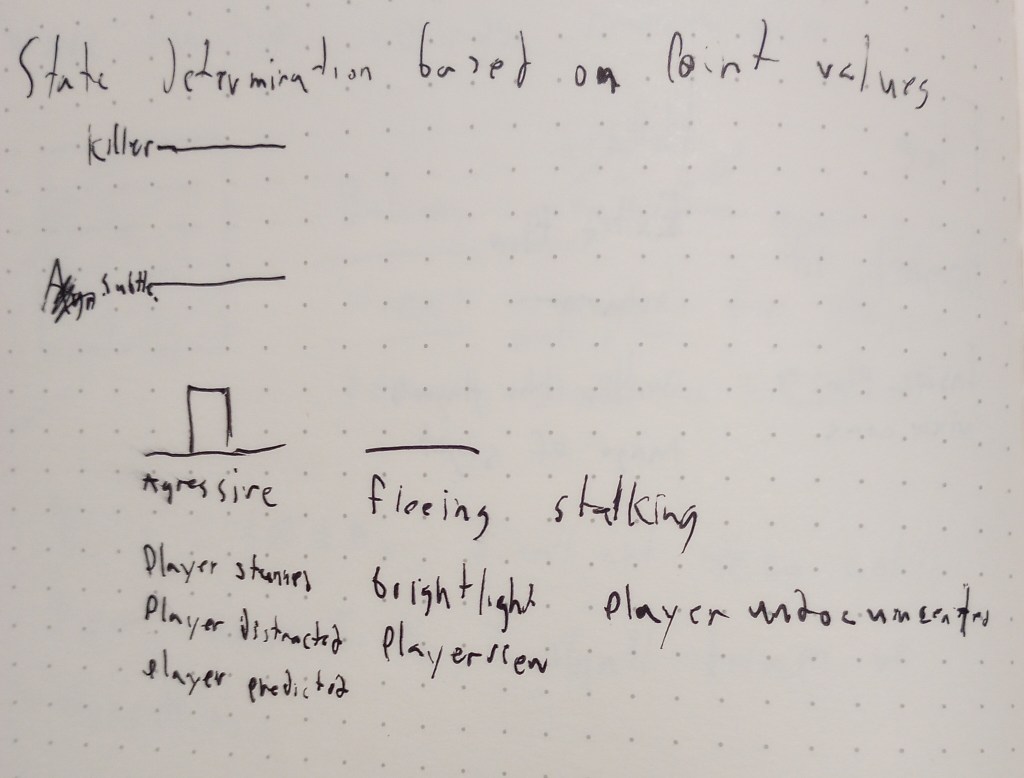 State Determination based on Point values
Killer
Subtle
Agressive
fleeing
stalking
Player stunned
Player distracted
Player predicted
bright light
Player seen
Player undocumented